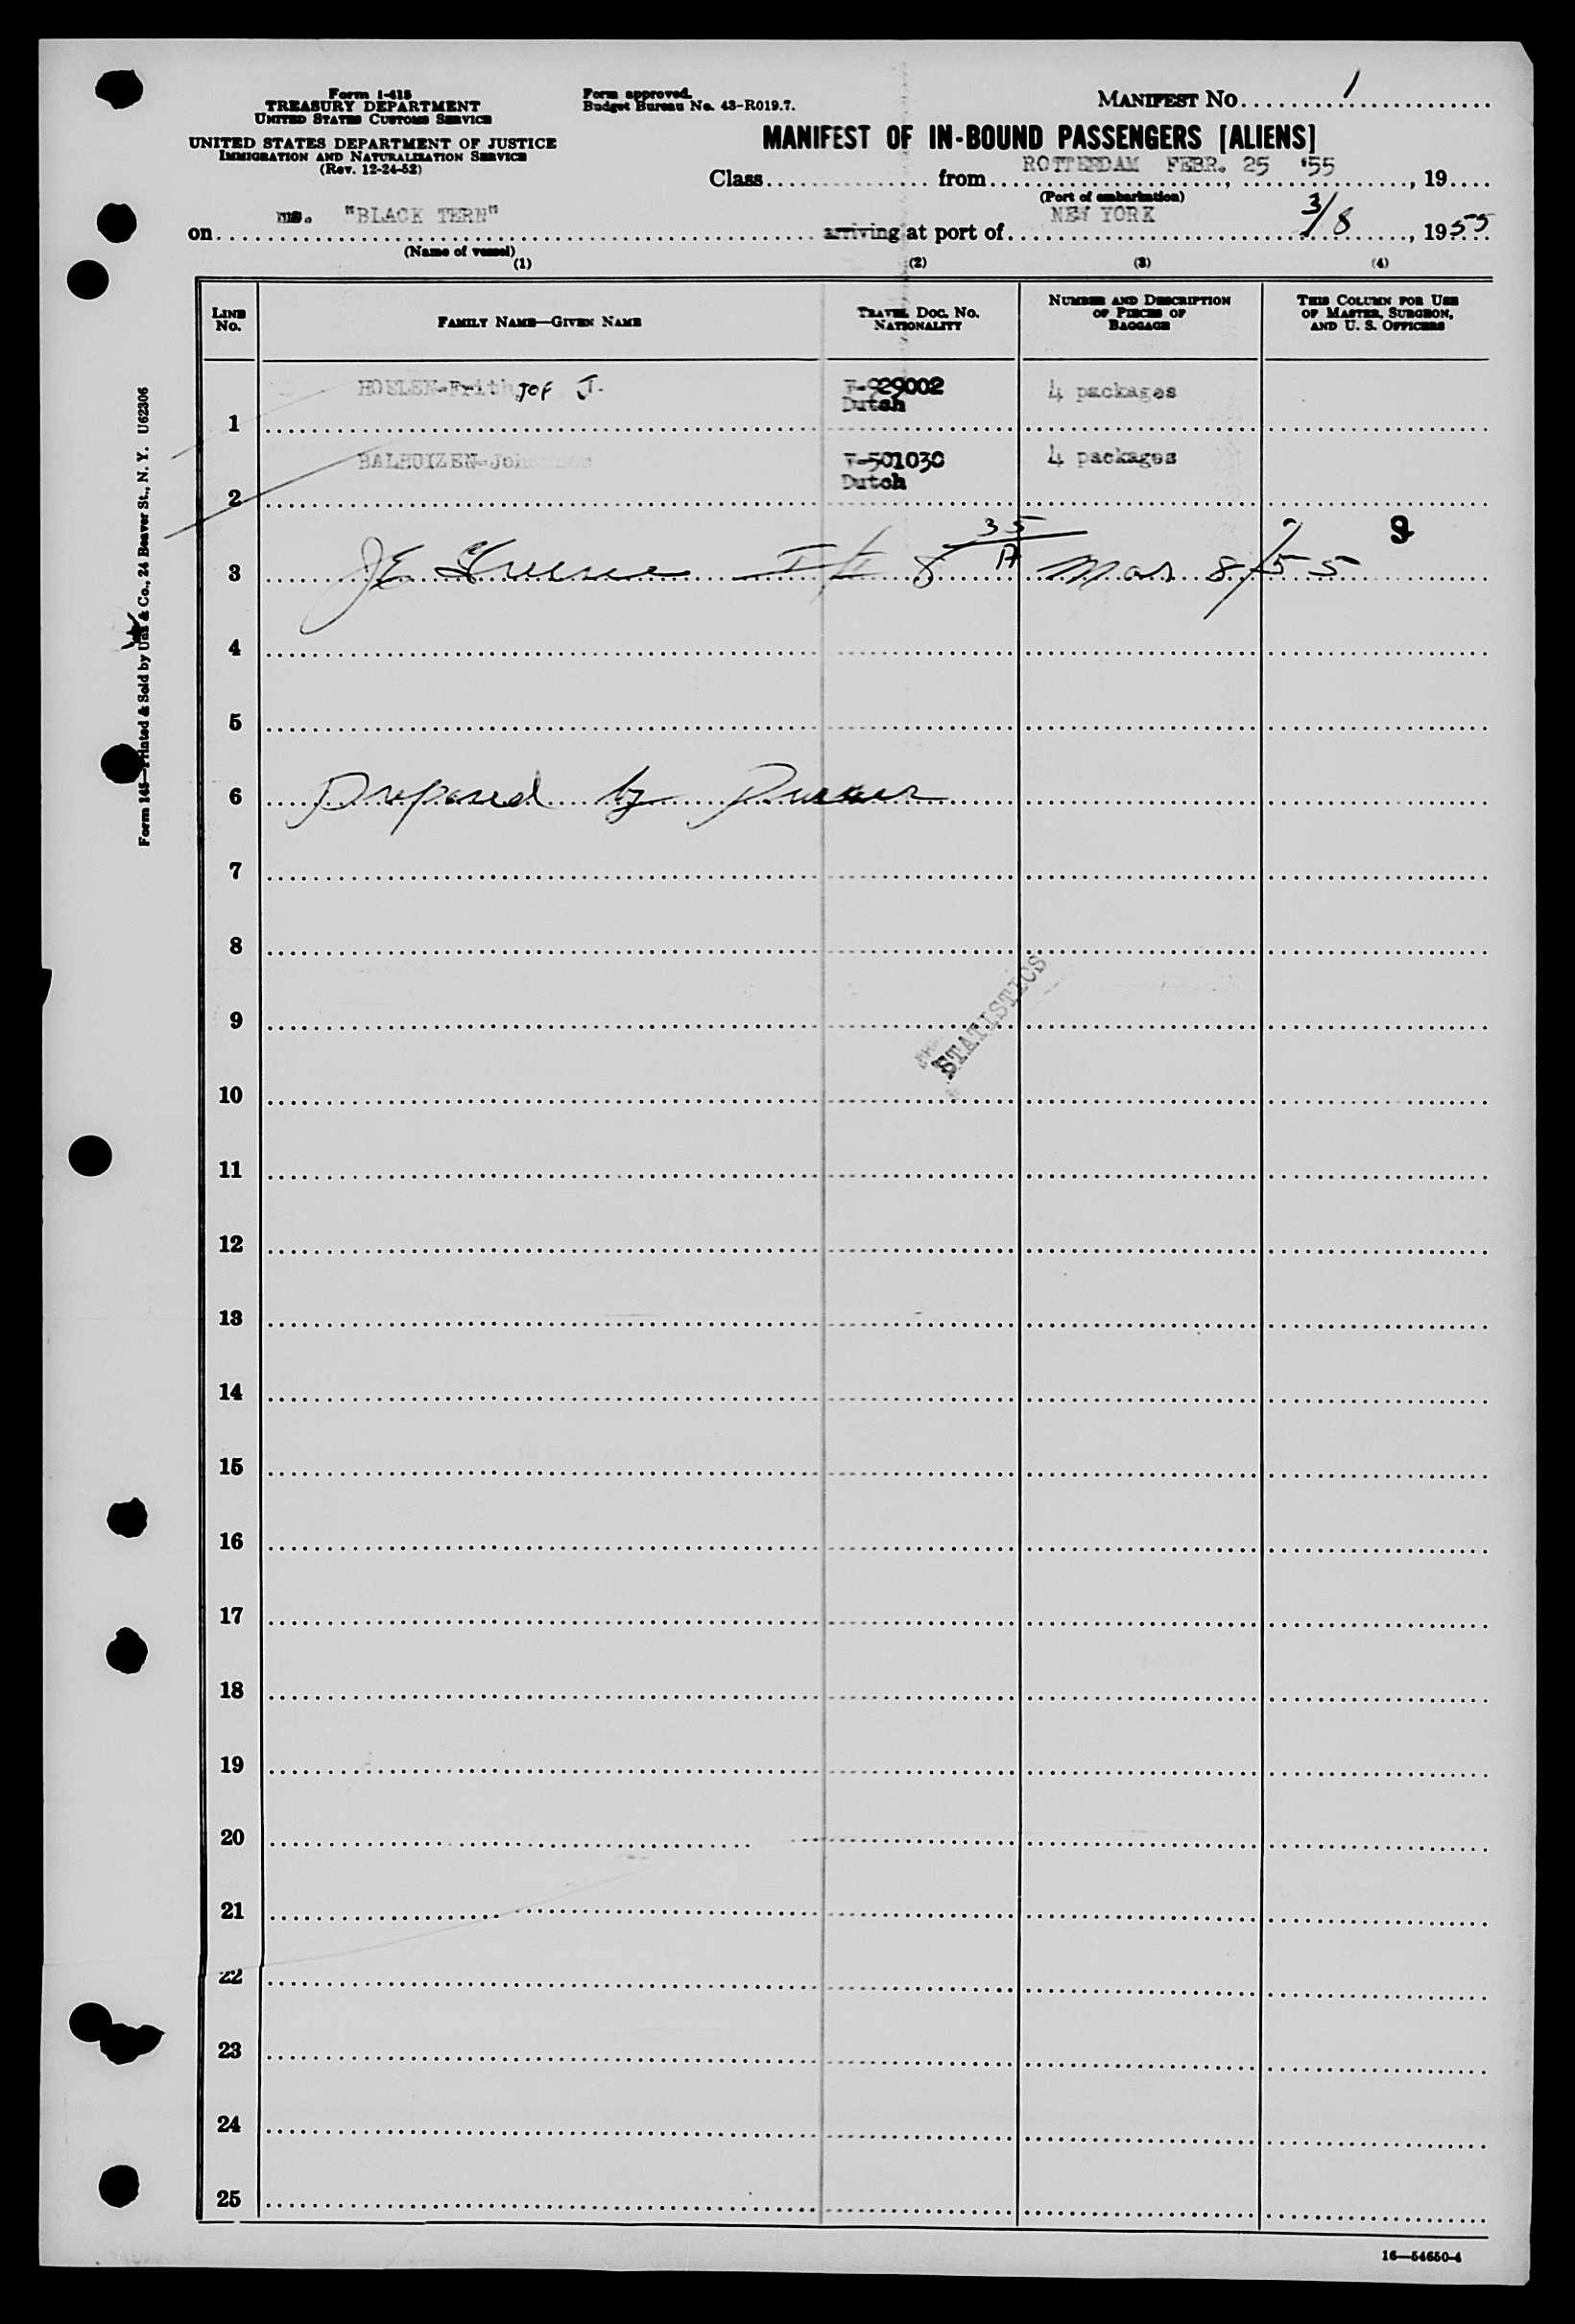 Form I-418
TREASURY DEPARTMENT
UNITED STATES CUSTOMS SERVICE
UNITED STATES DEPARTMENT OF JUSTICE
IMMIGRATION AND NATURALIZATION SERVICE
(Rev. 12-24-52)
Form approved.
Budget Bureau No. 43-R019.7.
MANIFEST No. 1
MANIFEST OF IN-BOUND PASSENGERS [ALIENS]
Class from ROTTERDAM FEBR. 25 '55, 19
(Port of embarkation)
on ms. "BLACK TERN" arriving at port of NEW YORK 3/8, 1955
(Name of vessel)
(1) (2) (3) (4)
LINE No. FAMILY NAME—GIVEN NAME TRAVEL DOC. No. NATIONALITY NUMBER AND DESCRIPTION OF PIECES OF BAGGAGE THIS COLUMN FOR USE OF MASTER, SURGEON, AND U. S. OFFICERS
1 HOELEN-Frithjof J. 929002 Dutch 4 packages
2 BALHUIZEN- 501030 Dutch 4 packages
3 JE Greene 8 35 A Mar 8/55 9
4
5
6 prepared by
7
8
9
STATISTICS
10
11
12
13
14
15
16
17
18
19
20
21
22
23
24
25
16—54650-4
Form 145—Printed & Sold by Unz & Co., 24 Beaver St., N. Y. U62306